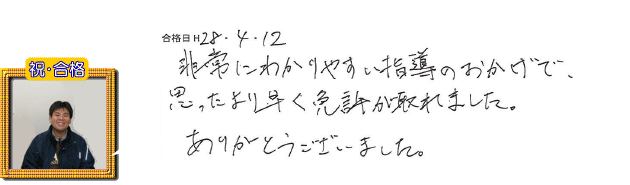 祝・合格
合格日 H28・4・12
非常にわかりやすい指導のおかげで、
思ったより早く免許が取れました。
ありがとうございました。